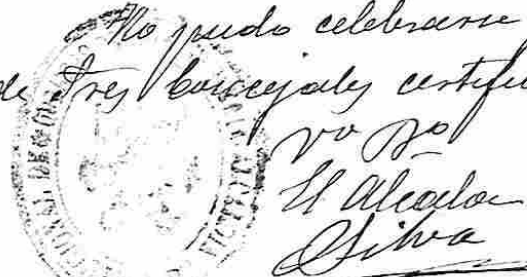 No pudo celebrarse
de tres concejales certific
Vo Bo
El Alcalde
Silva